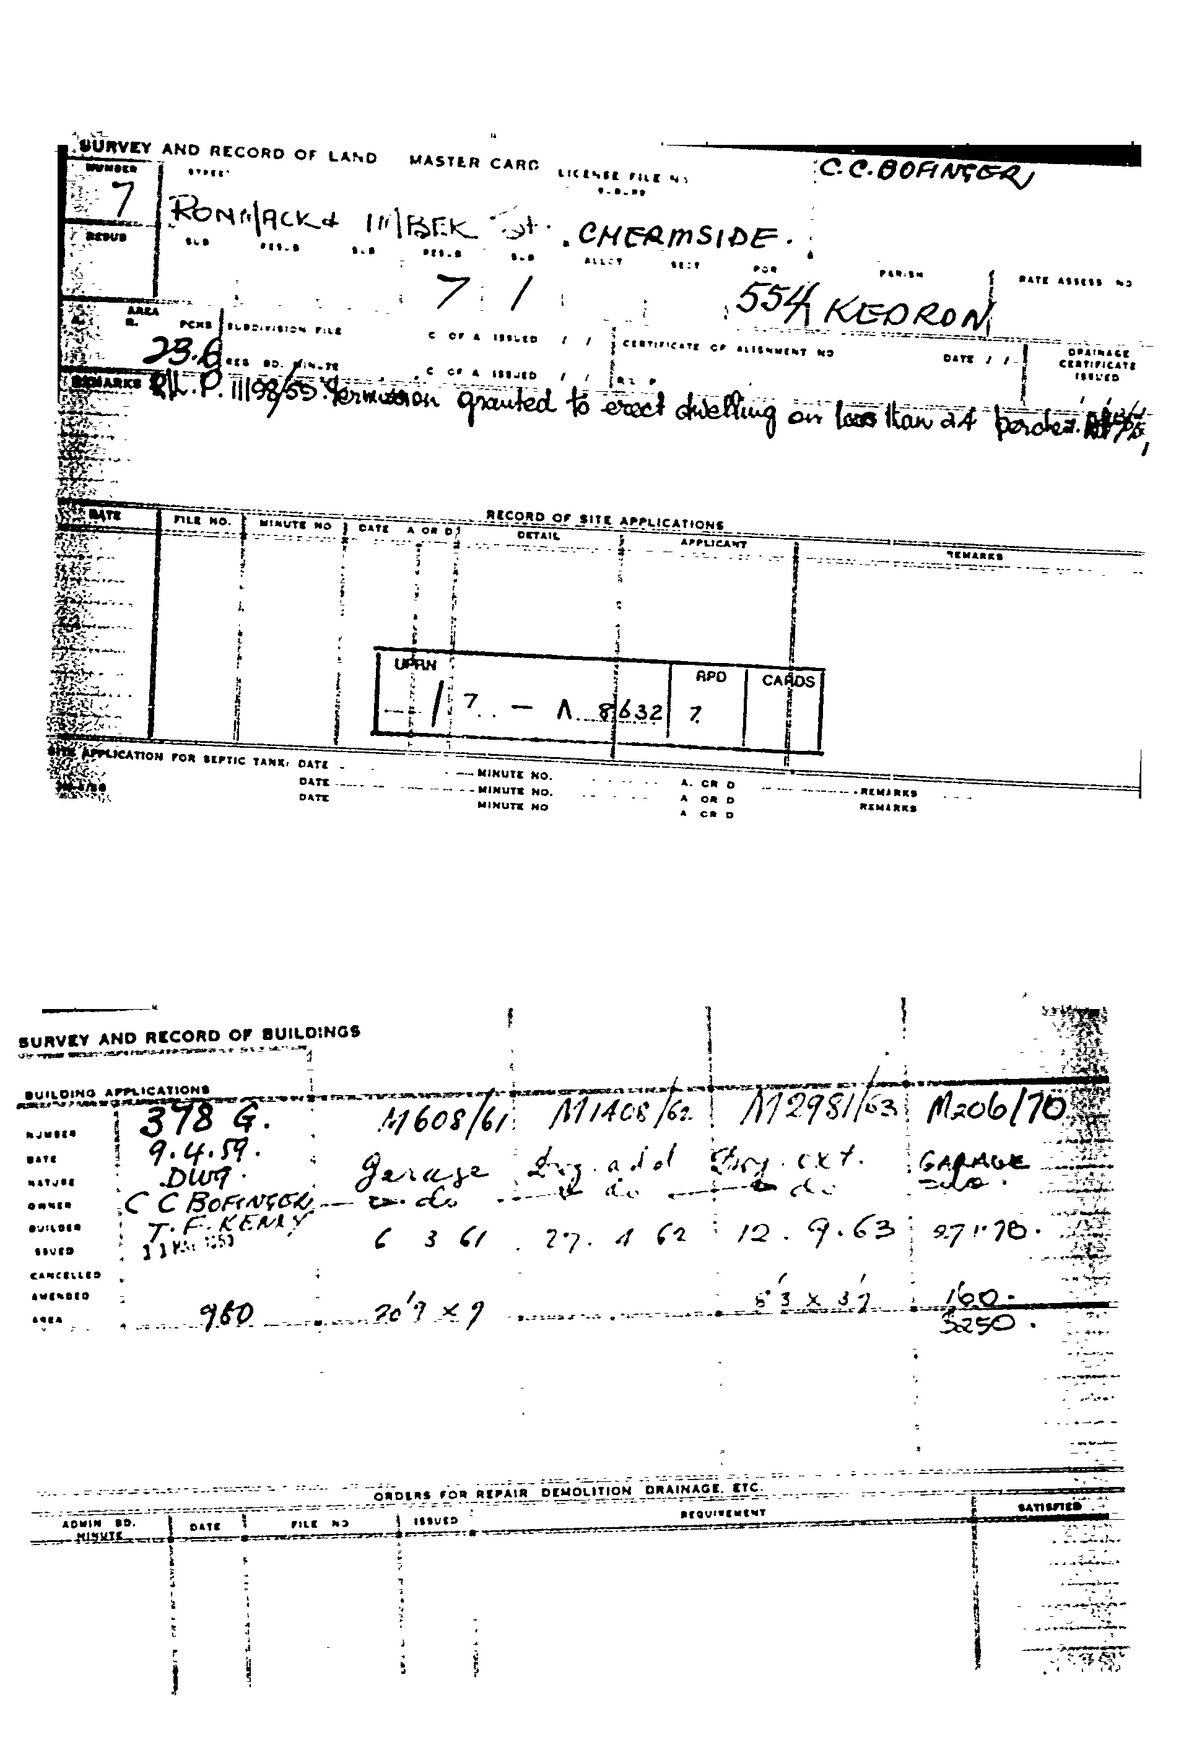 SURVEY AND RECORD OF LAND MASTER CARD LICENSE FILE NO C.C. BOFINGER
NUMBER STREET
7 ST. CHERMSIDE.
RESUB SUB RES.B SUB RES.B SUB ALLOT SECT POR PARISH RATE ASSESS NO
7 1 554 KEDRON
AREA
R. PCHS SUBDIVISION FILE C OF A ISSUED / / CERTIFICATE OF ALIGNMENT NO DATE / / DRAINAGE CERTIFICATE ISSUED
23.6 REG BD. MINUTE C OF A ISSUED / / R.L. P
REMARKS Permission granted to erect dwelling on less than 24 perches.
RECORD OF SITE APPLICATIONS
DATE FILE NO. MINUTE NO DATE A OR D DETAIL APPLICANT REMARKS
UPRN RPD CARDS
/ 7 — A 8632 7
SITE APPLICATION FOR SEPTIC TANK: DATE MINUTE NO. A. OR D REMARKS
DATE MINUTE NO. A OR D REMARKS
DATE MINUTE NO A OR D
SURVEY AND RECORD OF BUILDINGS
BUILDING APPLICATIONS
NUMBER 378 G. M608/61 M1408/62 M2981/63 M206/70
DATE 9.4.59.
NATURE DWG. Garage Dwg. add Dwg. ext. GARAGE
OWNER C C BOFINGER do do do do.
BUILDER T. F. KENRY
ISSUED 6 3 61 27. 4 62 12. 9. 63 27.1.70.
CANCELLED
AMENDED
AREA 960 20'9 x 9 8'3 x 3'9 160.
3250.
ORDERS FOR REPAIR DEMOLITION DRAINAGE. ETC.
ADMIN BD. MINUTE DATE FILE NO ISSUED REQUIREMENT SATISFIED